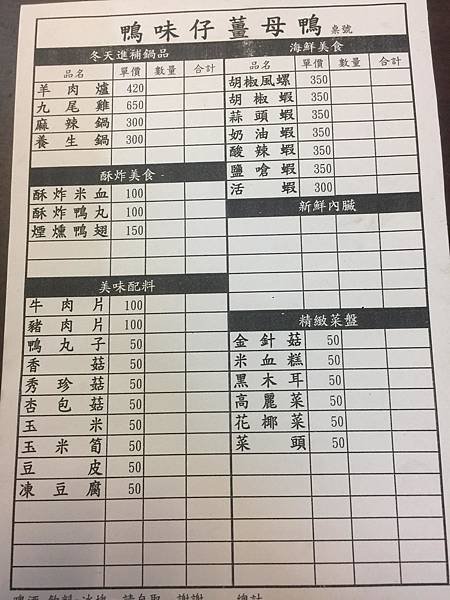 鴨味仔薑母鴨 桌號
冬天進補鍋品
品名 單價 數量 合計
羊肉爐 420
九尾雞 650
麻辣鍋 300
養生鍋 300
酥炸美食
酥炸米血 100
酥炸鴨丸 100
煙燻鴨翅 150
美味配料
牛肉片 100
豬肉片 100
鴨丸子 50
香菇 50
秀珍菇 50
杏包菇 50
玉米 50
玉米筍 50
豆皮 50
凍豆腐 50
海鮮美食
品名 單價 數量 合計
胡椒風螺 350
胡椒蝦 350
蒜頭蝦 350
奶油蝦 350
酸辣蝦 350
鹽嗆蝦 350
活蝦 300
新鮮內臟
精緻菜盤
金針菇 50
米血糕 50
黑木耳 50
高麗菜 50
花椰菜 50
菜頭 50
啤酒 飲料 冰塊 請自取 謝謝 總計